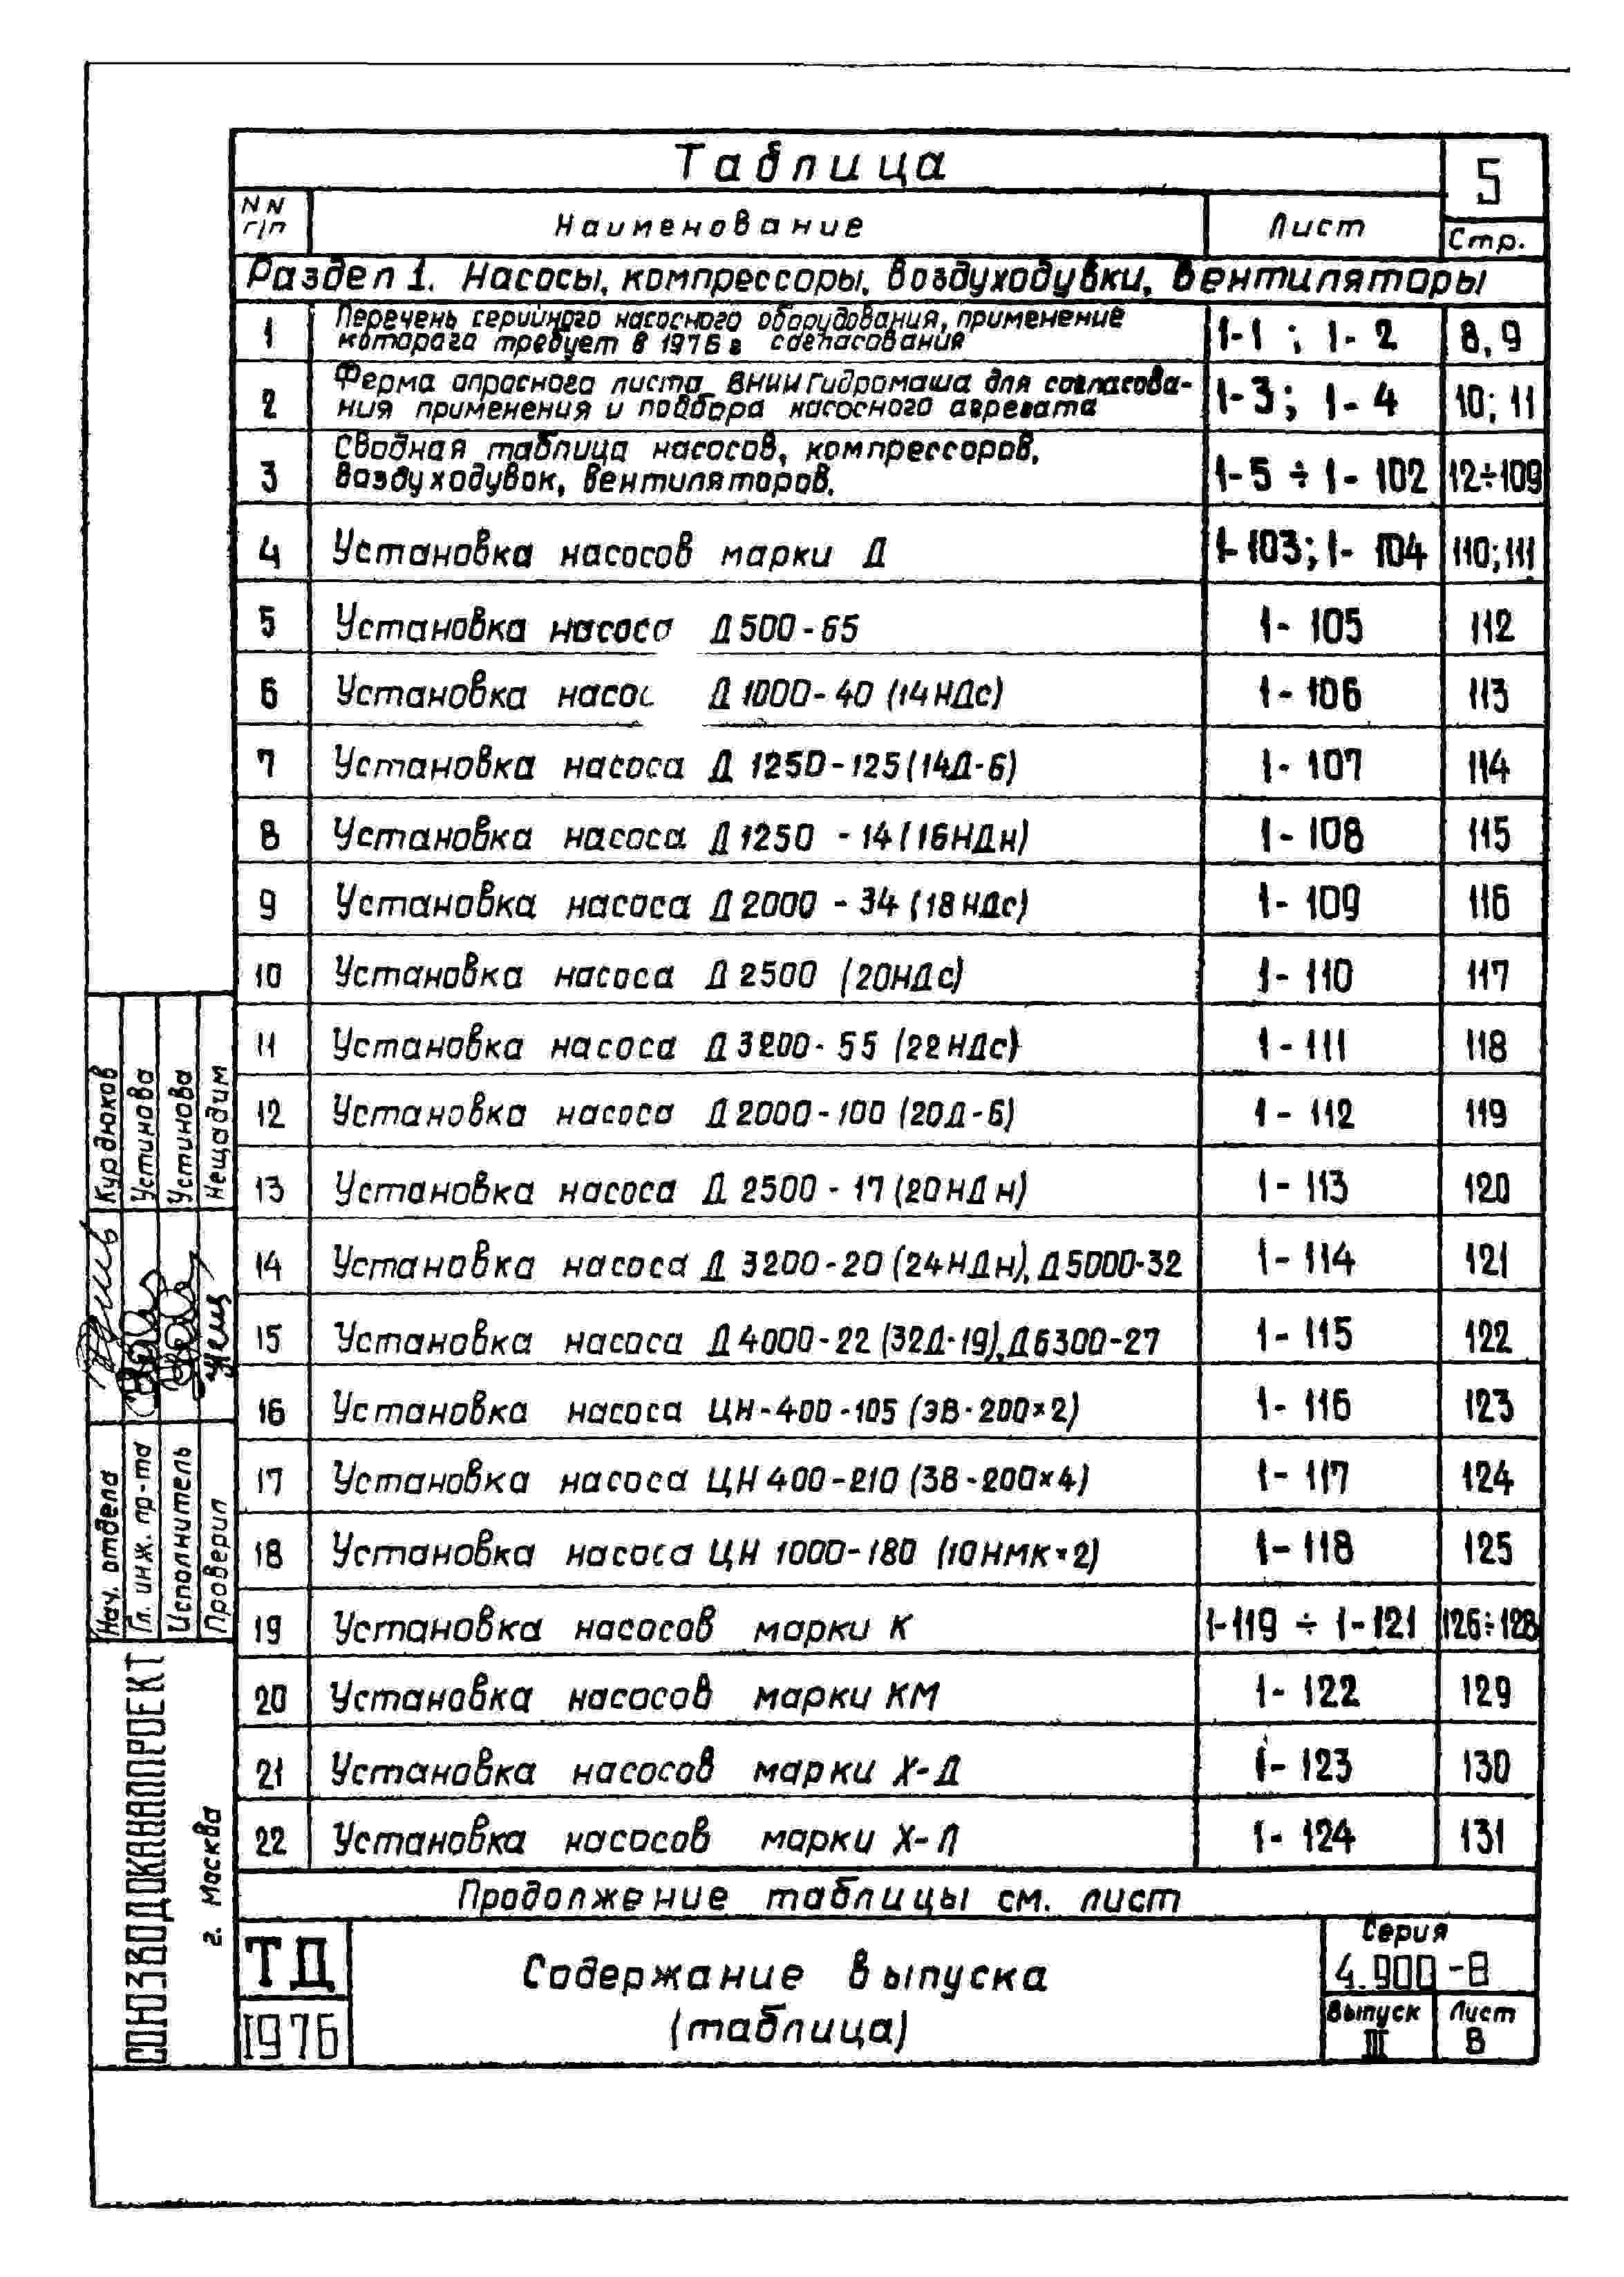 Таблица
5
NN г/п
Наименование
Лист
Стр.
Раздел 1. Насосы, компрессоры, воздуходувки, вентиляторы
1 Перечень серийного насосного оборудования, применение 1-1 ; 1-2 8,9
которого требует в 1976 г согласования
2 Форма опросного листа ВНИИГидромаша для согласова- 1-3; 1-4 10; 11
ния применения и подбора насосного агрегата
3 Сводная таблица насосов, компрессоров, 1-5 ÷ 1-102 12÷109
воздуходувок, вентиляторов.
4 Установка насосов марки Д 1-103; 1-104 110; 111
5 Установка насоса Д 500-65 1-105 112
6 Установка насос Д 1000-40 (14НДс) 1-106 113
7 Установка насоса Д 1250-125 (14Д-6) 1-107 114
8 Установка насоса Д 1250 -14 (16НДн) 1-108 115
9 Установка насоса Д 2000 - 34 (18НДс) 1-109 116
10 Установка насоса Д 2500 (20НДс) 1-110 117
11 Установка насоса Д 3200-55 (22НДс) 1-111 118
12 Установка насоса Д 2000-100 (20Д-6) 1-112 119
13 Установка насоса Д 2500-17 (20НДн) 1-113 120
14 Установка насоса Д 3200-20 (24НДн), Д5000-32 1-114 121
15 Установка насоса Д 4000-22 (32Д-19), Д6300-27 1-115 122
16 Установка насоса ЦН-400-105 (3В-200×2) 1-116 123
17 Установка насоса ЦН 400-210 (3В-200×4) 1-117 124
18 Установка насоса ЦН 1000-180 (10НМК×2) 1-118 125
19 Установка насосов марки К 1-119 ÷ 1-121 126÷128
20 Установка насосов марки КМ 1-122 129
21 Установка насосов марки Х-Д 1-123 130
22 Установка насосов марки Х-Л 1-124 131
Продолжение таблицы см. лист
ТД
1976
Содержание выпуска
(таблица)
Серия
4.900-8
Выпуск
III
Лист
В
Нач. отдела Курдюков
Гл. инж. пр-та Устинова
Исполнитель Устинова
Проверил Нещадим
СОЮЗВОДОКАНАЛПРОЕКТ
г. Москва